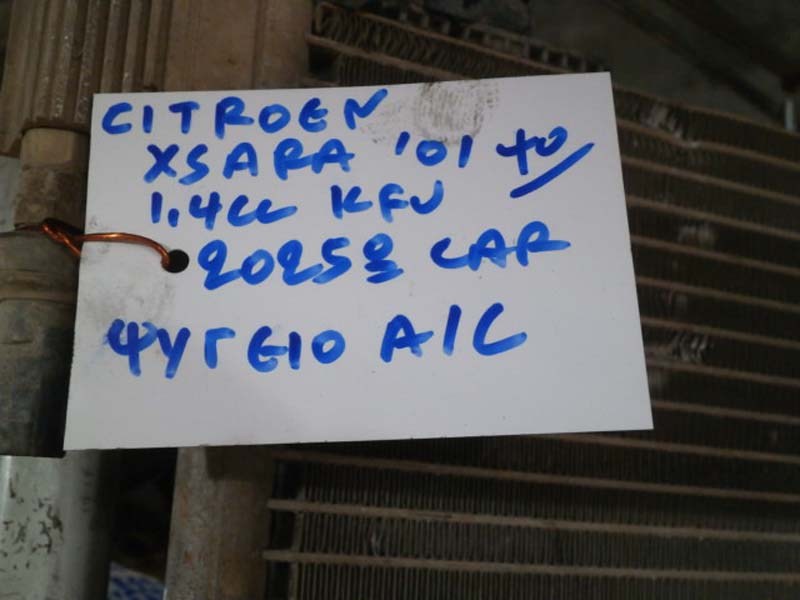 CITROEN
XSARA '01 το
1.4cc KFU
2025º CAR
ΨΥΓΕΙΟ A/C